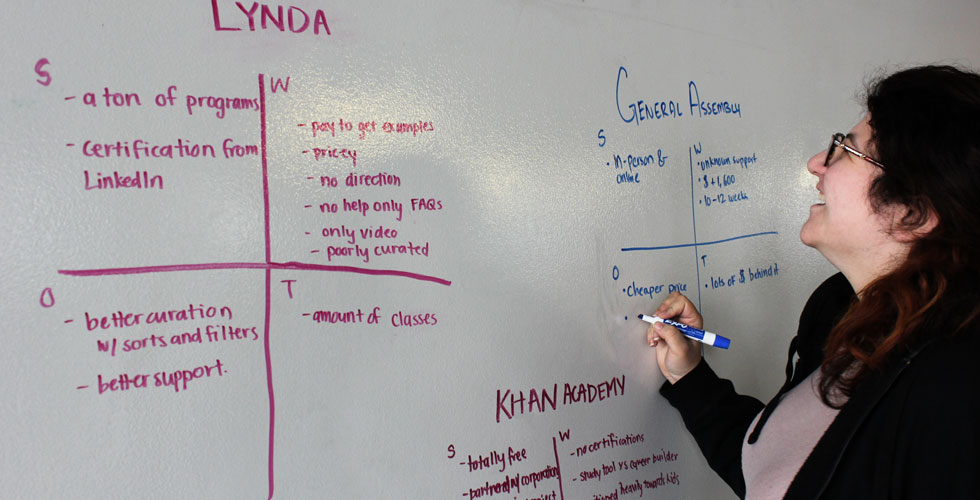 LYNDA
S
- a ton of programs
- certification from
LinkedIn
W
- pay to get examples
- pricey
- no direction
- no help only FAQs
- only video
- poorly curated
O
- better curation
w/ sorts and filters
- better support.
T
- amount of classes
GENERAL ASSEMBLY
S
• in-person &
online
W
• unknown support
• $ +1,600
• 10-12 weeks
O
• Cheaper price
•
T
• lots of $ behind it
EXPO
KHAN ACADEMY
S
- totally free
- partnered w/ corporation
W
- no certifications
- study tool vs career builder
heavily towards kids